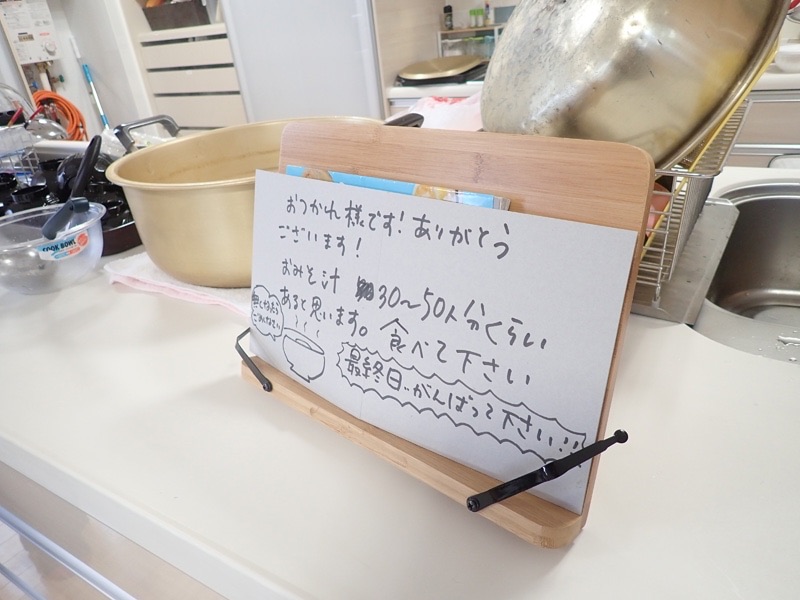 おつかれ様です！ありがとう
ございます！
おみそ汁 30～50人分くらい
あると思います。食べて下さい
無くなったら
ごめんなさい
最終日、がんばって下さい!!
COOK BOWL